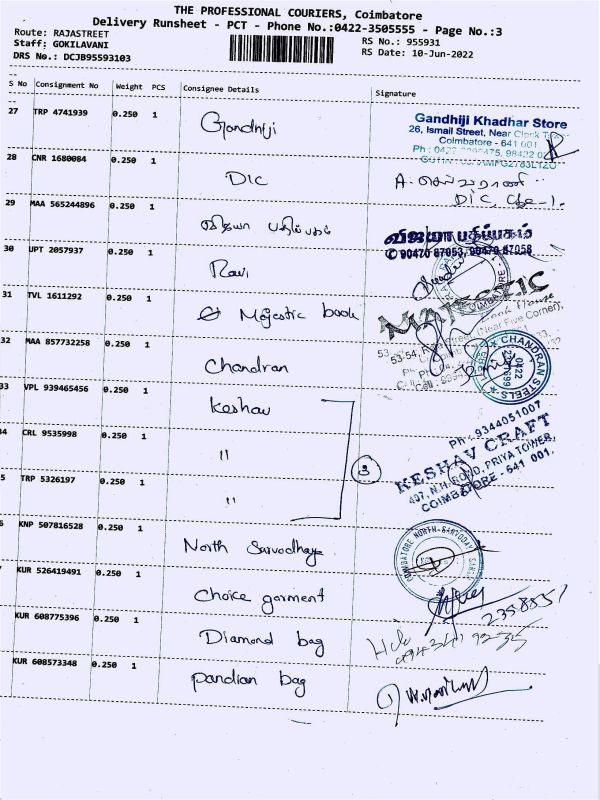 THE PROFESSIONAL COURIERS, Coimbatore
Delivery Runsheet - PCT - Phone No.:0422-3505555 - Page No.:3
Route: RAJASTREET
RS No.: 955931
Staff: GOKILAVANI
RS Date: 10-Jun-2022
DRS No.: DCJB95593103
S No Consignment No Weight PCS Consignee Details Signature
27 TRP 4741939 0.250 1 Gandhiji
Gandhiji Khadhar Store
26, Ismail Street, Near Clock
Coimbatore - 641 001.
28 CNR 1680084 0.250 1 DIC
DIC, Cbe-1.
29 MAA 565244896 0.250 1 விஜயா பதிப்பகம்
விஜயா பதிப்பகம்
✆ 90470 87053, 90470 87058
30 UPT 2057937 0.250 1 Ravi
31 TVL 1611292 1 Majestic book
0.250
MAJESTIC
Book House
(Near Five Corner),
32 MAA 857732258 0.250 1 Chandran
CHANDRAN STEELS
0422
33 VPL 939465456 0.250 1 Keshav
4 CRL 9535998 0.250 1 "
5 TRP 5326197 0.250 1 "
3
PH : 9344051007
KESHAV CRAFT
407, N.H. ROAD, PRIYA TOWER,
COIMBATORE - 641 001.
6 KNP 507816528 0.250 1 North Sarvodhaya
COIMBATORE NORTH-SARVODAYA SANGH
KUR 526419491 0.250 1 Choice garment
2358551
KUR 608775396 0.250 1 Diamond bag
KUR 608573348 0.250 1 pandian bag